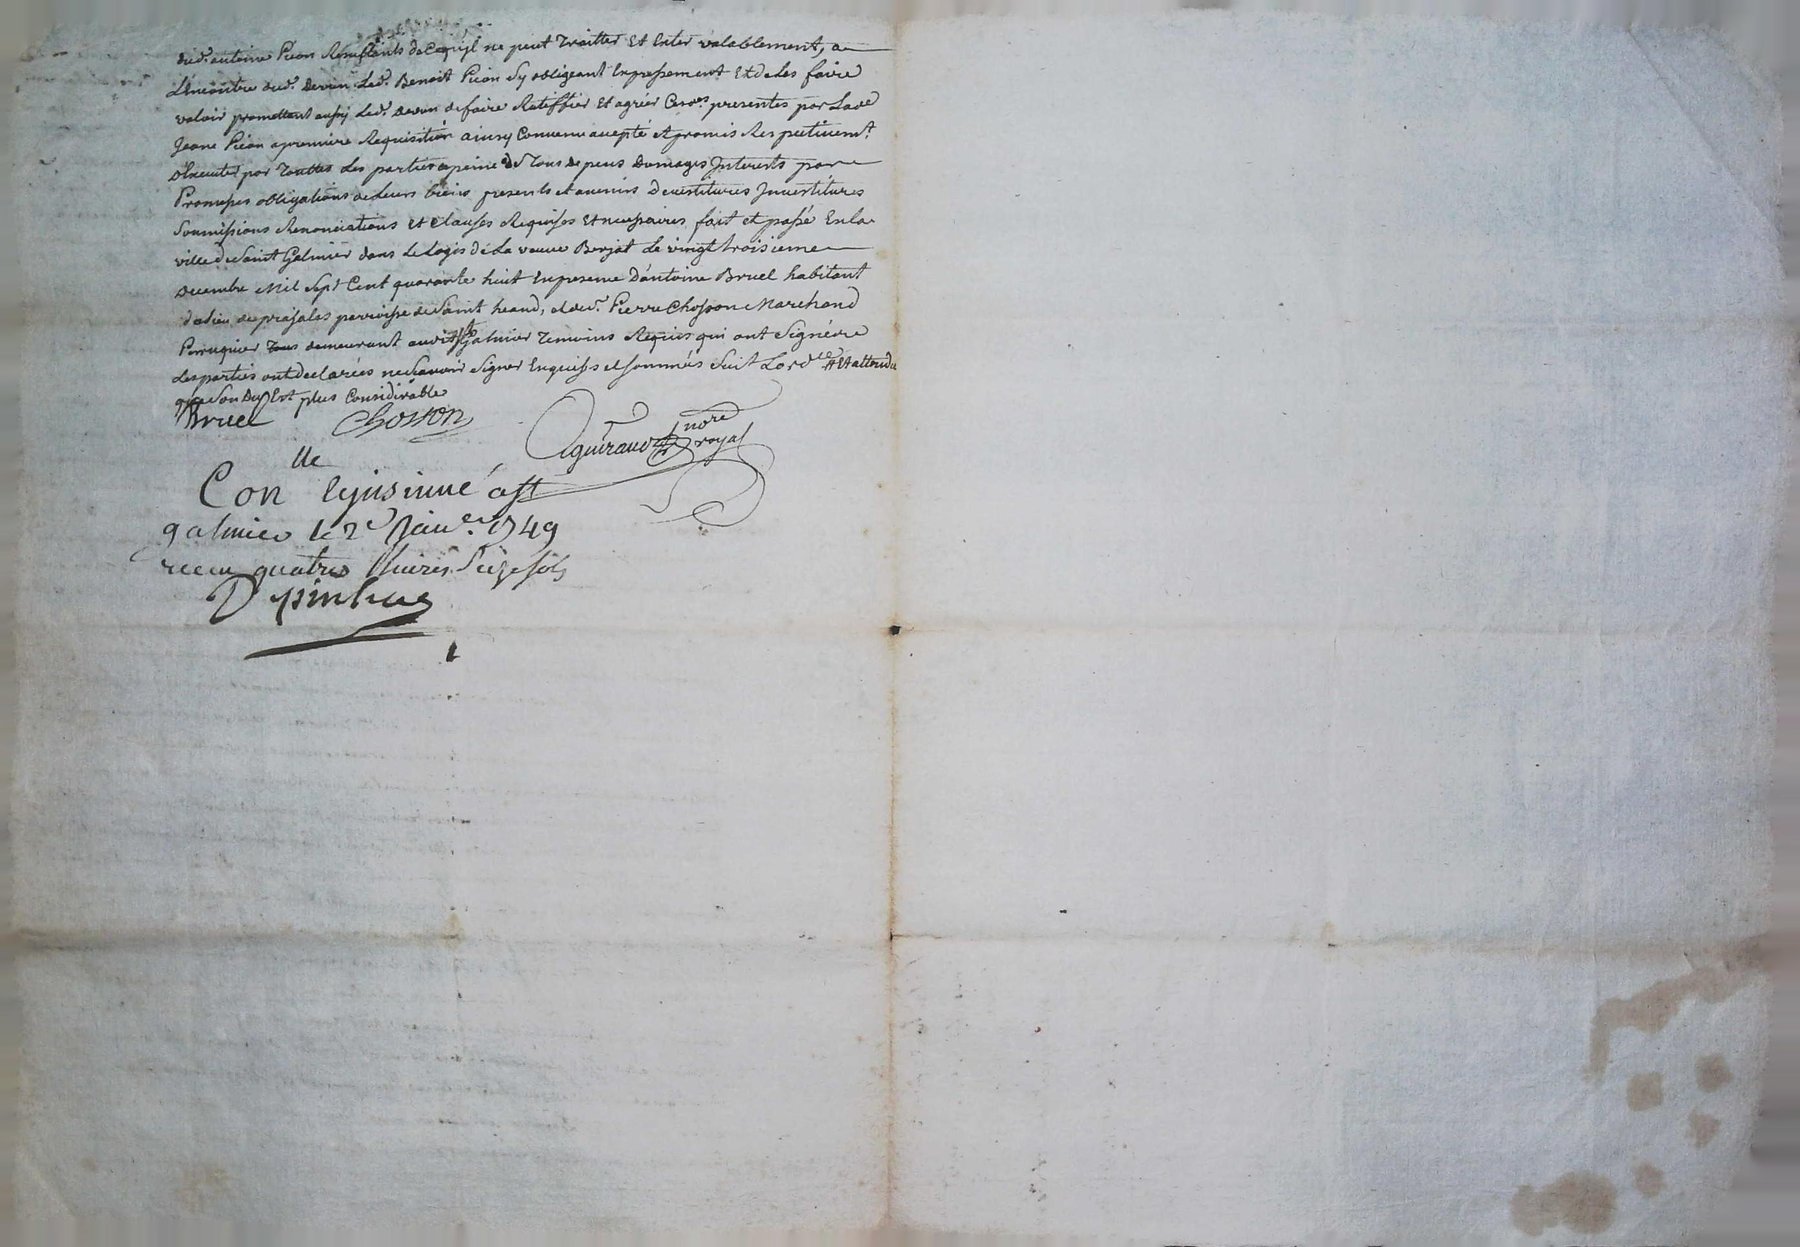 dud. antoine Picon Resultants de cequil ne peut Traitter Et Ester valablement, a
Lencontre dud. Devin Led. Benoit Picon Sy obligeant Expressement Et de Les faire
valoir promettant aussy Led. Devin de faire Ratiffier Et agréer Cesd.es presentes par Lade
Jeane Picon a premiere Requisition ainsy Convenu accepté et promis Respectivem.t
par Touttes Les parties a peine de Tous Depens Domages Interests par
Promesses obligations de Leurs biens presents et avenirs Devestitures Investitures
Soumissions Renonciations Et Clauses Requises Et necessaires, fait et passé En la
ville de Saint Galmier dans Le Logis de La veuve Berjat Le vingt troisieme
Decembre Mil Sept Cent quarante huit En presence D'antoine Bruel habitant
du Lieu de prasalas parroisse de Saint heand, et de s.r Pierre Chosson Marchand
Perruquier demeurant audit St Galmier Temoins Requis qui ont Signé
Les parties ont declarées ne Scavoir Signer Enquises et Sommées Suit Lord.le # Et attendu
que Son Est plus Considérable
Bruel Chosson Aguiraud nore royal
lle
Con et insinué a St
galmier le 2e Janv.er 1749
receu quatre livres Seize sols